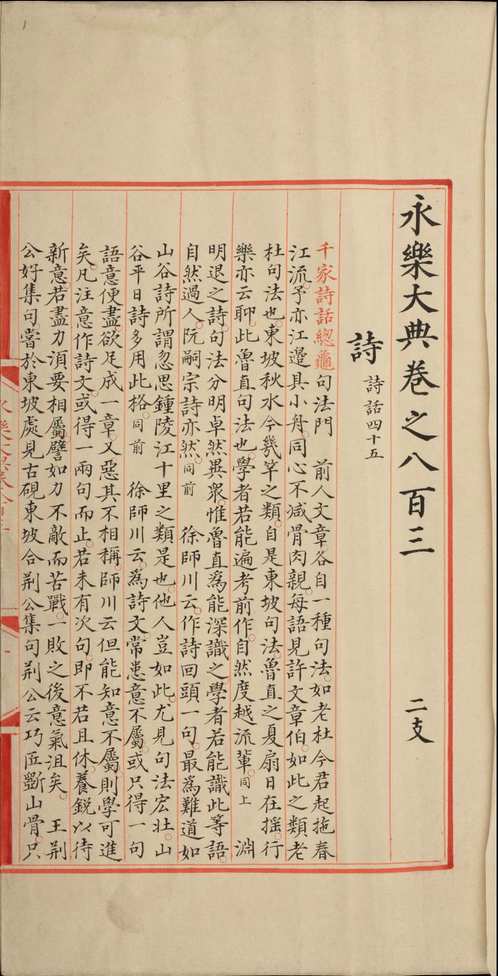 永樂大典卷之八百三　二支
詩　詩話四十五
千家詩話總龜句法門　前人文章各自一種句法如老杜今君起拖春
江流予亦江邊具小舟同心不減骨肉親每語見許文章伯如此之類老
杜句法也東坡秋水今幾竿之類自是東坡句法魯直之夏扇日在摇行
樂亦云聊此魯直句法也學者若能遍考前作自然度越流輩同上　淵
明退之詩句法分明卓然異衆惟魯直爲能深識之學者若能識此等語
自然過人阮嗣宗詩亦然同前　徐師川云作詩回頭一句最爲難道如
山谷詩所謂忽思鍾陵江十里之類是也他人豈如此尤見句法宏壮山
谷平日詩多用此格同前　徐師川云爲詩文常患意不屬或只得一句
語意便盡欲足成一章又惡其不相稱師川云但能知意不屬則學可進
矣凡注意作詩文或得一兩句而止若未有次句即不若且休養鋭以待
新意若盡力湏要相屬譬如力不敵而苦戰一敗之後意氣沮矣　王荆
公好集句嘗於東坡處見古硯東坡合荆公集句荆公云巧匠斲山骨只